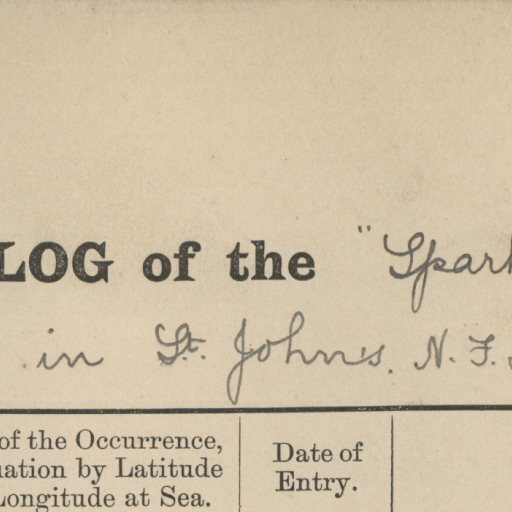 LOG of the "Spark
in St. John's. N. F.
of the Occurrence,
uation by Latitude
Longitude at Sea.
Date of
Entry.